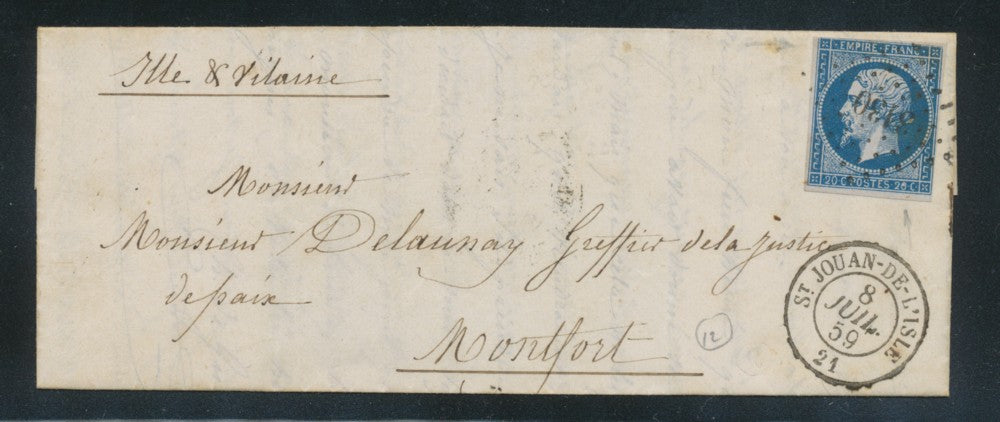 Ille & Vilaine
EMPIRE · FRANC ·
20 C POSTES 20 C
Monsieur
Monsieur Delaunay Greffier de la Justice
de paix
Montfort
12
ST. JOUAN-DE-L'ISLE
8
JUIL.
59
21